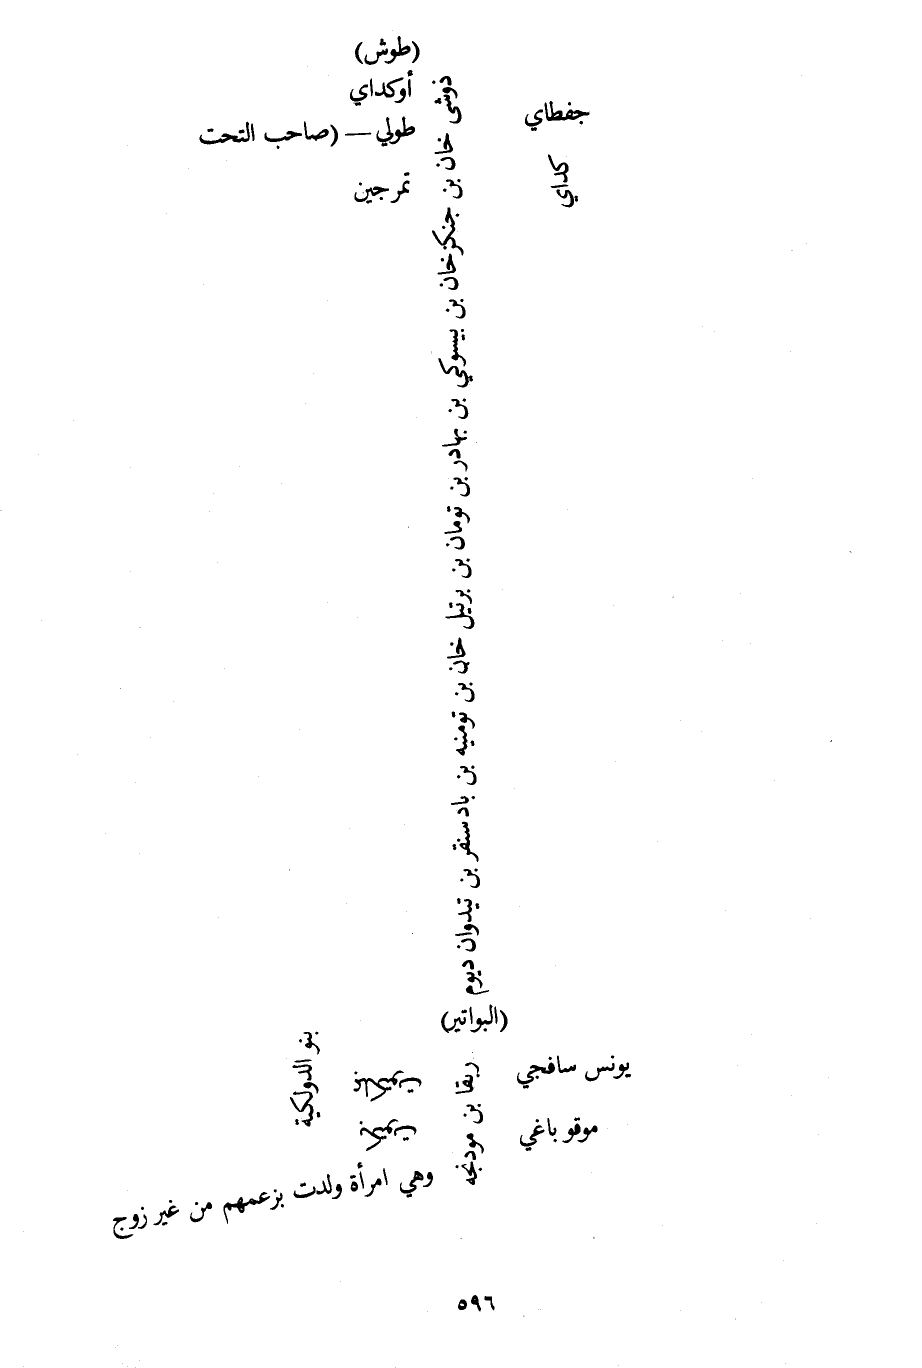 (طوش)
أوكداي
جفطاي
طولي — (صاحب التحت
كداي
تمرجين
ذوشى خان بن جنكزخان بن بيسوكي بن بهادر بن تومان بن برتيل خان بن تومنيه بن بادسنقر بن تيدوان ديوم
(البواتير)
يونس سافجي
ريقا بن مودنجه
بنو الدولكية
موقو باغي
وهي امرأة ولدت بزعمهم من غير زوج
٥٩٦